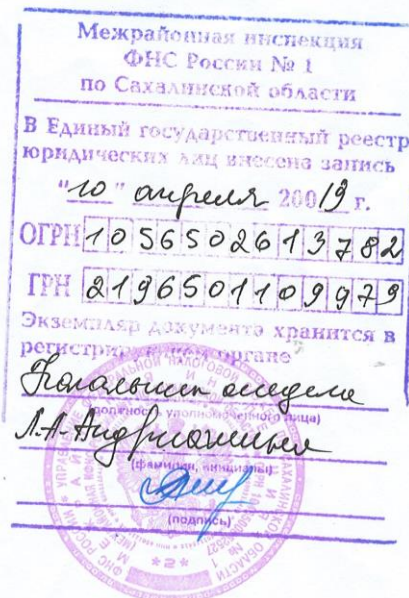 Межрайонная инспекция
ФНС России № 1
по Сахалинской области
В Единый государственный реестр
юридических лиц внесена запись
"10" апреля 20019 г.
ОГРН 1056502613782
ГРН 2196501109979
Экземпляр документа хранится в
регистрирующем органе
Начальник отдела
(должность уполномоченного лица)
Л.А.
(фамилия, инициалы)
(подпись)